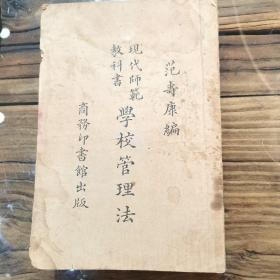 范壽康編
現代師範
教科書
學校管理法
商務印書館出版